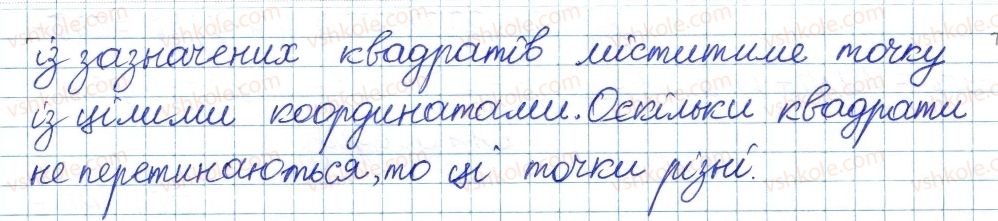 із зазначених квадратів міститиме точку
із цілими координатами. Оскільки квадрати
не перетинаються, то ці точки різні.